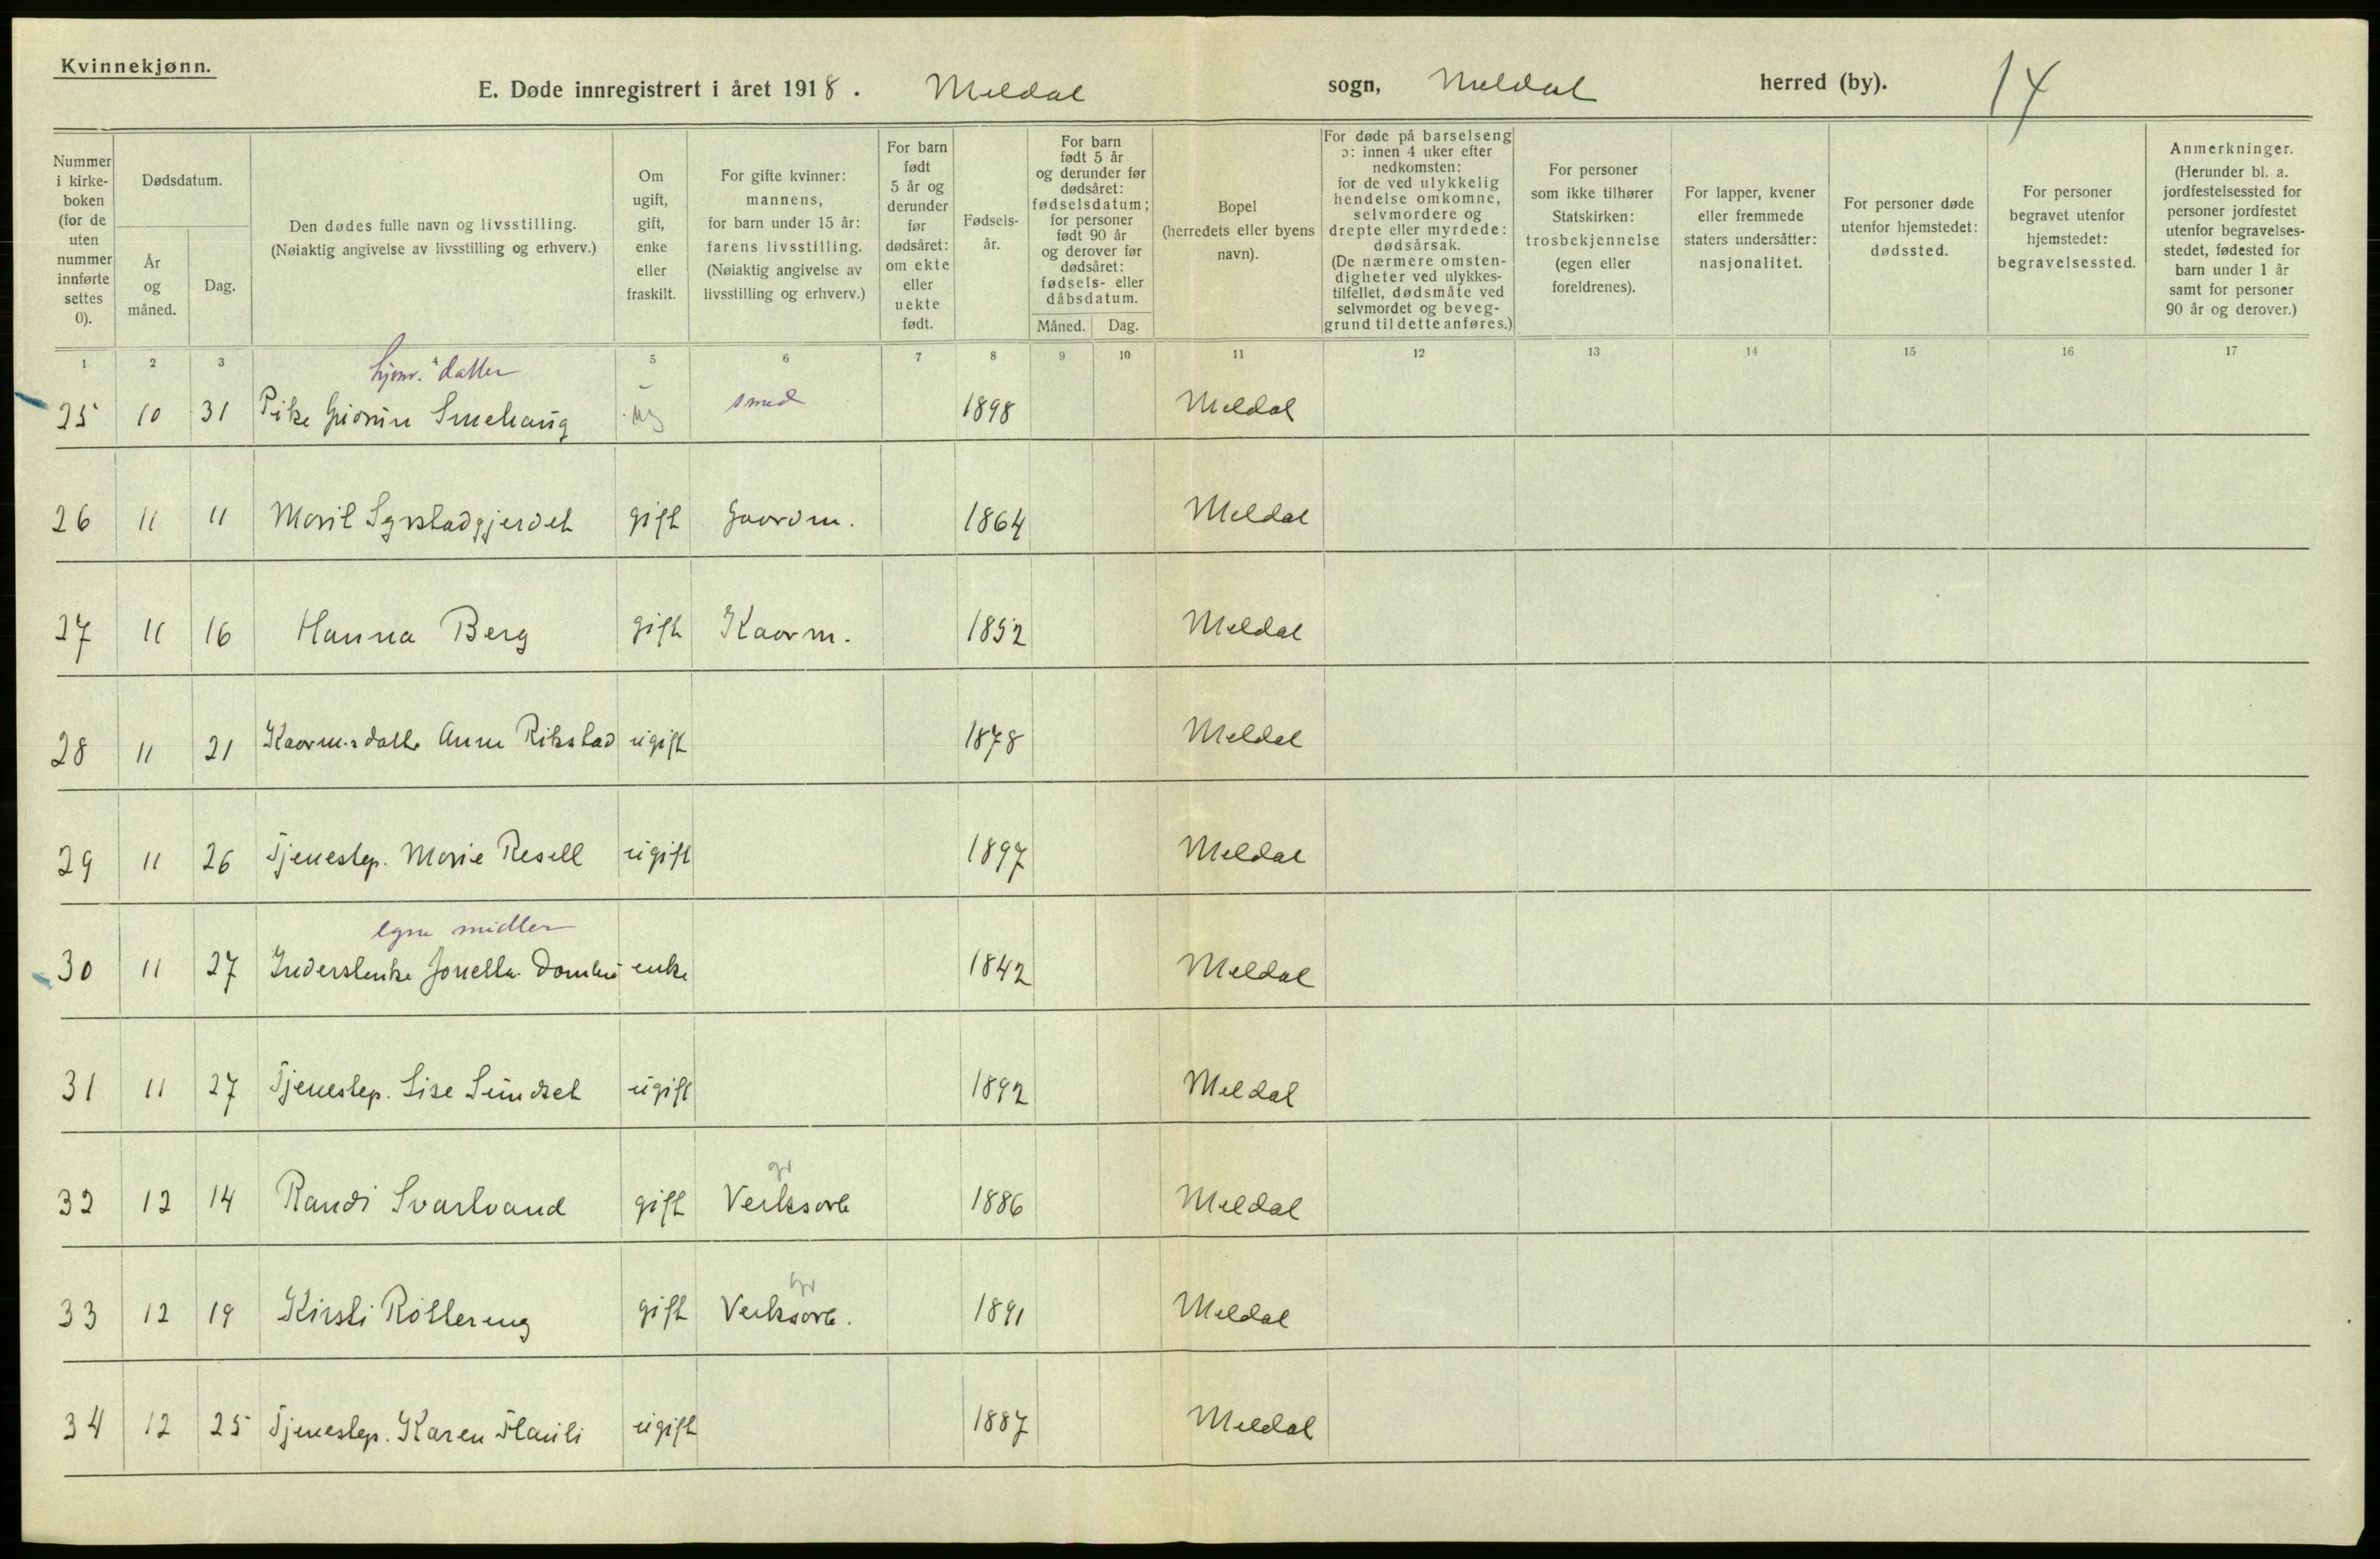 Kvinnekjønn.
E. Døde innregistrert i året 1918. Meldal sogn, Meldal herred (by). 14
Nummer i kirke- boken (for de uten nummer innførte settes 0).
Dødsdatum.
År og måned.
Dag.
Den dødes fulle navn og livsstilling.
(Nøiaktig angivelse av livsstilling og erhverv.)
Om ugift, gift, enke eller fraskilt.
For gifte kvinner: mannens, for barn under 15 år: farens livsstilling. (Nøiaktig angivelse av livsstilling og erhverv.)
For barn født 5 år og derunder før dødsåret: om ekte eller uekte født.
Fødsels- år.
For barn født 5 år og derunder før dødsåret: fødselsdatum; for personer født 90 år og derover før dødsåret: fødsels- eller dåbsdatum.
Måned. Dag.
Bopel (herredets eller byens navn).
For døde på barselseng ɔ: innen 4 uker efter nedkomsten: for de ved ulykkelig hendelse omkomne, selvmordere og drepte eller myrdede: dødsårsak. (De nærmere omsten- digheter ved ulykkes- tilfellet, dødsmåte ved selvmordet og beveg- grund til dette anføres.)
For personer som ikke tilhører Statskirken: trosbekjennelse (egen eller foreldrenes).
For lapper, kvener eller fremmede staters undersåtter: nasjonalitet.
For personer døde utenfor hjemstedet: dødssted.
For personer begravet utenfor hjemstedet: begravelsessted.
Anmerkninger. (Herunder bl. a. jordfestelsessted for personer jordfestet utenfor begravelses- stedet, fødested for barn under 1 år samt for personer 90 år og derover.)
1 2 3 4 5 6 7 8 9 10 11 12 13 14 15 16 17
hjemv. datter
25 10 31 Pike Guorun Smehaug ug smed 1898 Meldal
26 11 11 Marit Syrstadgjerdet gift Gaardm. 1864 Meldal
27 11 16 Hanna Berg gift Kaarm. 1852 Meldal
28 11 21 Kaarm.s datt. Anne Rikstad ugift 1878 Meldal
29 11 26 Tjenestep. Marie Resell ugift 1897 Meldal
egne midler
30 11 27 Inderstenke Jonetta enke 1842 Meldal
31 11 27 Tjenestep. Lise Sundset ugift 1892 Meldal
gr
32 12 14 Randi Svartvand gift Verksarb 1886 Meldal
gr
33 12 19 Kirsti Røttereng gift Verksarb. 1891 Meldal
34 12 25 Tjenestep. Karen Flauli ugift 1887 Meldal